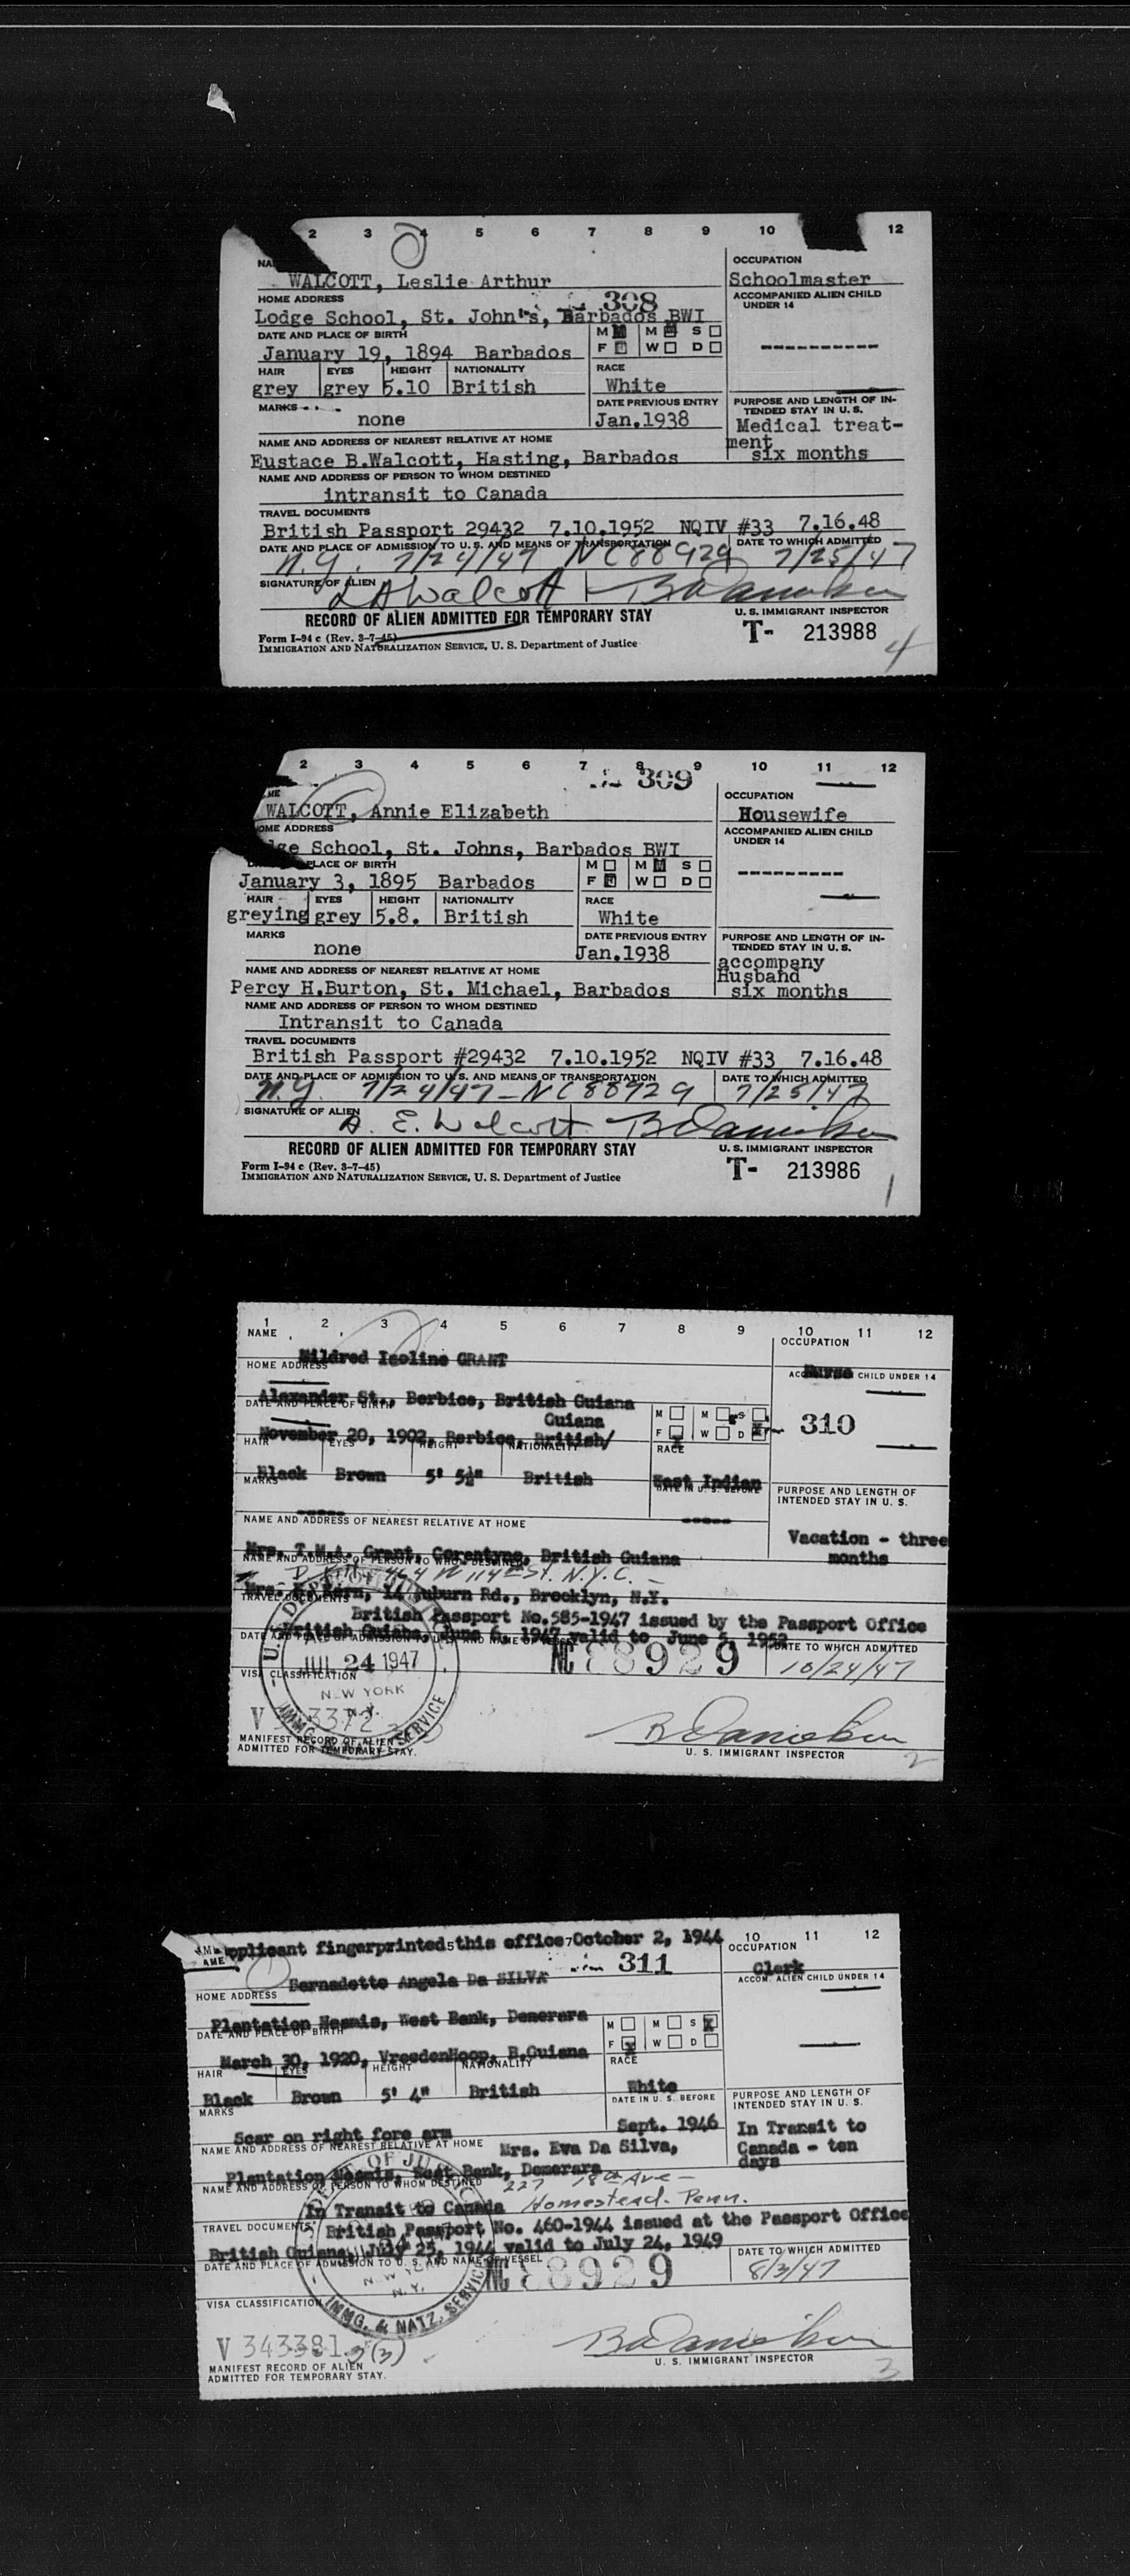 2 3 4 5 6 7 8 9 10 12
WALCOTT, Leslie Arthur
OCCUPATION
Schoolmaster
HOME ADDRESS
308
ACCOMPANIED ALIEN CHILD UNDER 14
Lodge School, St. John's, Barbados BWI
DATE AND PLACE OF BIRTH
M M S
----------
January 19, 1894 Barbados
F W D
HAIR EYES HEIGHT NATIONALITY RACE
grey grey 5.10 British White
MARKS
none
DATE PREVIOUS ENTRY
Jan.1938
PURPOSE AND LENGTH OF IN-
TENDED STAY IN U. S.
Medical treat-
ment
six months
NAME AND ADDRESS OF NEAREST RELATIVE AT HOME
Eustace B.Walcott, Hasting, Barbados
NAME AND ADDRESS OF PERSON TO WHOM DESTINED
intransit to Canada
TRAVEL DOCUMENTS
British Passport 29432 7.10.1952 NQIV #33 7.16.48
DATE AND PLACE OF ADMISSION TO U. S. AND MEANS OF TRANSPORTATION DATE TO WHICH ADMITTED
N.Y. 7/24/47 NC88929 7/25/47
SIGNATURE OF ALIEN
LAWalcott
RECORD OF ALIEN ADMITTED FOR TEMPORARY STAY
U. S. IMMIGRANT INSPECTOR
Form I-94 c (Rev. 3-7-45)
IMMIGRATION AND NATURALIZATION SERVICE, U. S. Department of Justice
T- 213988
4
2 3 4 5 6 7 8 9 10 11 12
309
WALCOTT, Annie Elizabeth
OCCUPATION
Housewife
OME ADDRESS
ACCOMPANIED ALIEN CHILD UNDER 14
dge School, St. Johns, Barbados BWI
PLACE OF BIRTH
M M S
---------
January 3, 1895 Barbados
F W D
HAIR EYES HEIGHT NATIONALITY RACE
greying grey 5.8. British White
MARKS
none
DATE PREVIOUS ENTRY
Jan.1938
PURPOSE AND LENGTH OF IN-
TENDED STAY IN U. S.
accompany
Husband
six months
NAME AND ADDRESS OF NEAREST RELATIVE AT HOME
Percy H.Burton, St. Michael, Barbados
NAME AND ADDRESS OF PERSON TO WHOM DESTINED
Intransit to Canada
TRAVEL DOCUMENTS
British Passport #29432 7.10.1952 NQIV #33 7.16.48
DATE AND PLACE OF ADMISSION TO U. S. AND MEANS OF TRANSPORTATION DATE TO WHICH ADMITTED
N.Y. 7/24/47-NC88929 7/25/47
SIGNATURE OF ALIEN
A. E. Walcott
RECORD OF ALIEN ADMITTED FOR TEMPORARY STAY
U. S. IMMIGRANT INSPECTOR
Form I-94 c (Rev. 3-7-45)
IMMIGRATION AND NATURALIZATION SERVICE, U. S. Department of Justice
T- 213986
1
1 2 3 4 5 6 7 8 9 10 11 12
NAME
OCCUPATION
Mildred Isoline GRANT
Nurse
HOME ADDRESS
CHILD UNDER 14
Alexander St., Berbice, British Guiana
DATE AND PLACE OF BIRTH
Guiana
M M S
310
November 20, 1902, Berbice, British/
F W D
HAIR EYES HEIGHT NATIONALITY RACE
Black Brown 5' 5½" British West Indian
MARKS
DATE IN U. S. BEFORE
PURPOSE AND LENGTH OF
INTENDED STAY IN U. S.
-----
NAME AND ADDRESS OF NEAREST RELATIVE AT HOME
Vacation - three
months
Mrs. T.M.A. Grant, Corentyne, British Guiana
NAME AND ADDRESS OF PERSON TO WHOM DESTINED
464 W 114th St. N.Y.C.
Brooklyn, N.Y.
TRAVEL DOCUMENTS
British Passport No.585-1947 issued by the Passport Office
British Guiana, June 6, 1947 valid to June 5, 1952
DATE AND PLACE OF ADMISSION TO U. S. AND NAME OF VESSEL DATE TO WHICH ADMITTED
JUL 24 1947
NC 88929
10/24/47
VISA CLASSIFICATION
NEW YORK
N.Y.
IMMG. SERVICE
MANIFEST RECORD OF ALIEN
ADMITTED FOR TEMPORARY STAY.
U. S. IMMIGRANT INSPECTOR
2
pplicant fingerprinted this office October 2, 1944
5 7 10 11 12
OCCUPATION
311
Clerk
Bernadette Angela Da SILVA
HOME ADDRESS
ACCOM. ALIEN CHILD UNDER 14
Plantation Nesmis, West Bank, Demerara
DATE AND PLACE OF BIRTH
M M S
March 30, 1920, VreedenHoop, B.Guiana
F W D
HAIR EYES HEIGHT NATIONALITY RACE
Black Brown 5' 4" British White
MARKS
DATE IN U. S. BEFORE
PURPOSE AND LENGTH OF
INTENDED STAY IN U. S.
Scar on right fore arm
Sept. 1946
In Transit to
Canada - ten
days
NAME AND ADDRESS OF NEAREST RELATIVE AT HOME
Mrs. Eva Da Silva,
Plantation Nesmis, West Bank, Demerara
NAME AND ADDRESS OF PERSON TO WHOM DESTINED
227 18th Ave -
In Transit to Canada Homestead. Penn.
TRAVEL DOCUMENTS
British Passport No. 460-1944 issued at the Passport Office
British Guiana, July 25, 1944 valid to July 24, 1949
DATE AND PLACE OF ADMISSION TO U. S. AND NAME OF VESSEL DATE TO WHICH ADMITTED
NC 88929
8/3/47
N.Y.
VISA CLASSIFICATION
IMMG. & NATZ. SERVICE
V 343381
MANIFEST RECORD OF ALIEN
ADMITTED FOR TEMPORARY STAY.
U. S. IMMIGRANT INSPECTOR
3